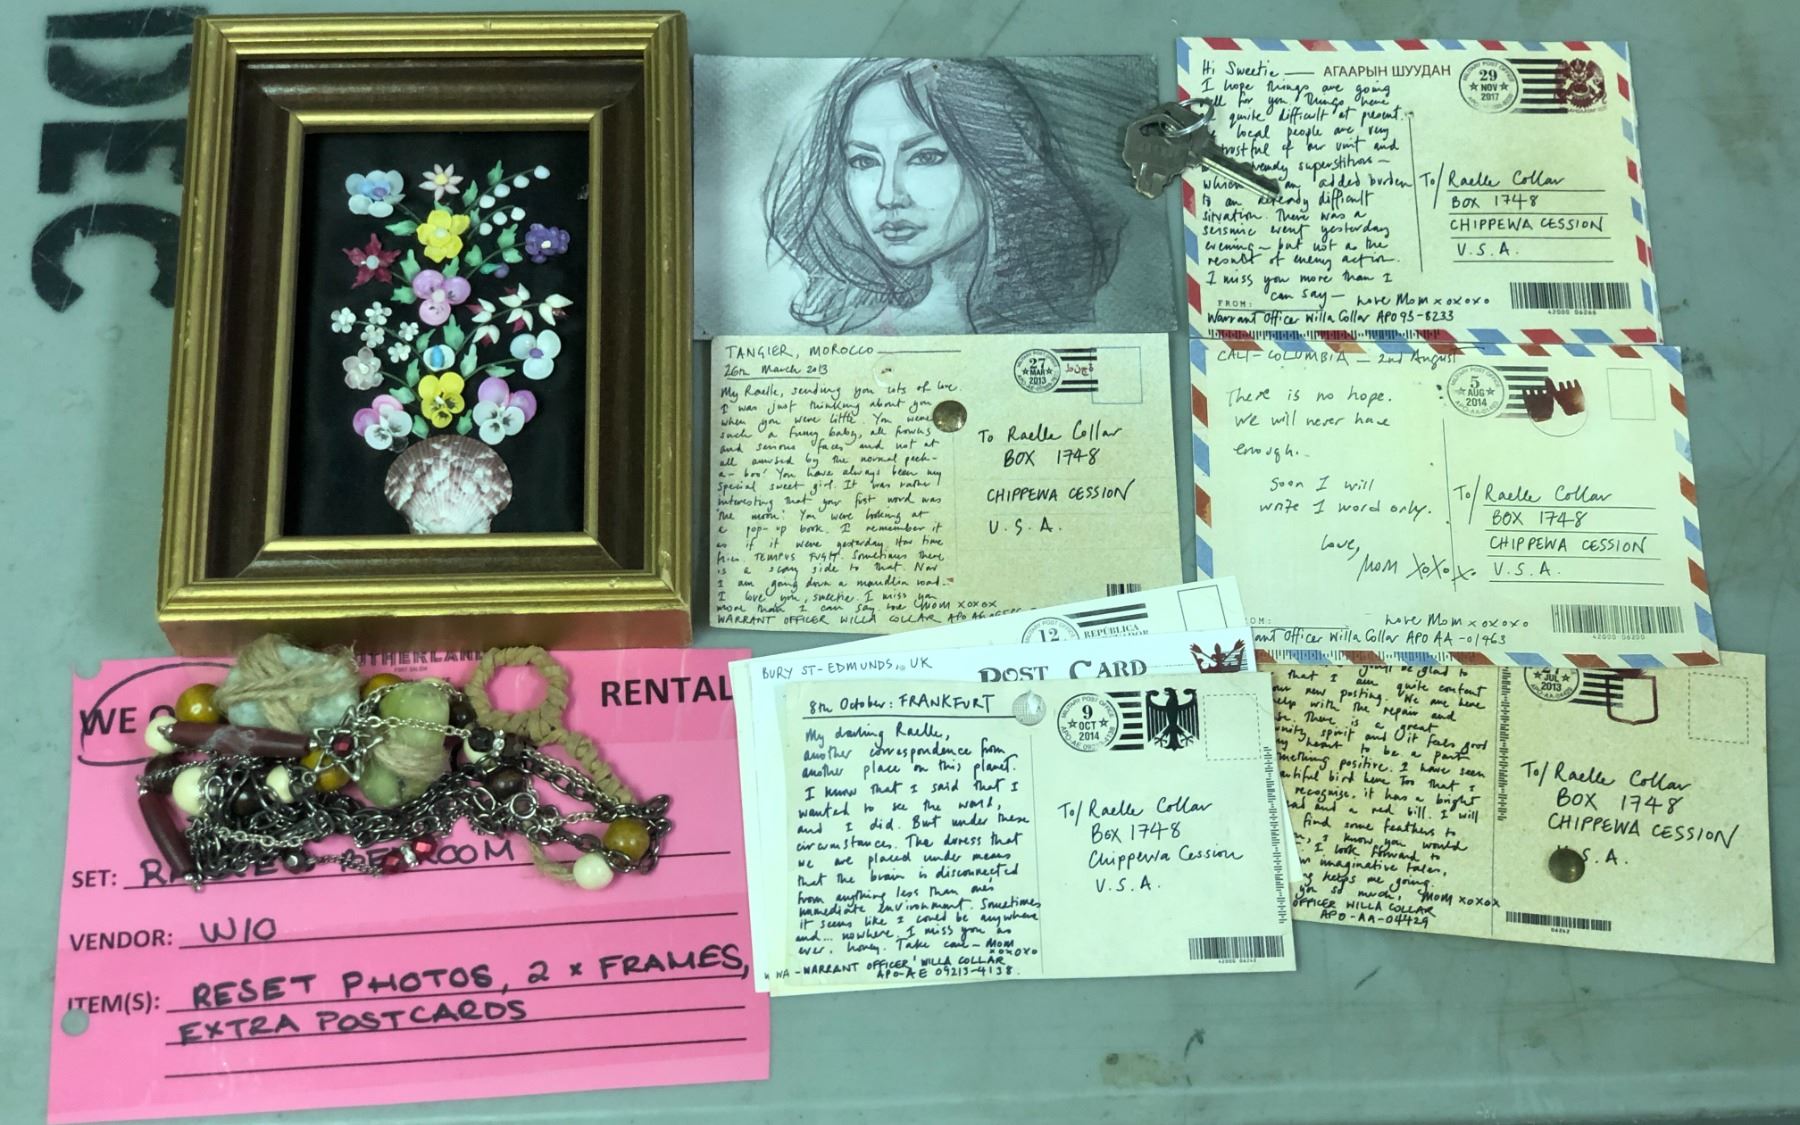 DEC
Hi Sweetie —— АГААРЫН ШУУДАН
I hope things are going
for you. Things here
quite difficult at present.
local people are very
of our unit and
superstitious —
which an added burden
to an already difficult
situation. There was a
seismic event yesterday
evening — but not as the
result of enemy action.
I miss you more than I
can say — Love Mom xoxoxo
FROM:
Warrant Officer Willa Collar APO 95-8233
MILITARY POST OFFICE
29
NOV
2017
To/ Raelle Collar
BOX 1748
CHIPPEWA CESSION
U.S.A.
42000 06266
TANGIER, MOROCCO
26th March 2013
My Raelle, sending you lots of love.
I was just thinking about you
when you were little. You were
such a funny baby, all frowns
and serious faces and not at
all amused by the normal peek-
a-boo! You have always been my
special sweet girl. It was rather
interesting that your first word was
'the moon'. You were looking at
a pop-up book. I remember it
as if it were yesterday. How time
flies. TEMPUS FUGIT. Sometimes there
is a scary side to that. Now
I am going down a maudlin road..
I love you, sweetie. I miss you
more than I can say. Love Mom xoxox
WARRANT OFFICER WILLA COLLAR APO
27
MAR
2013
To Raelle Collar
BOX 1748
CHIPPEWA CESSION
U.S.A.
CALI - COLUMBIA — 2nd August
There is no hope.
We will never have
enough.
Soon I will
write 1 word only.
Love,
Mom XoXoX.
MILITARY POST OFFICE
5
AUG
2014
APO-AA-01463
To/ Raelle Collar
BOX 1748
CHIPPEWA CESSION
U.S.A.
Love Mom xoxoxo
Officer Willa Collar APO AA-01463
42000 06200
MILITARY POST OFFICE
12
REPÚBLICA
BURY ST-EDMUNDS, UK
POST CARD
8th October: FRANKFURT
My darling Raelle,
another correspondence from
another place on this planet.
I know that I said that I
wanted to see the world,
and I did. But under these
circumstances. The duress that
we are placed under means
that the brain is disconnected
from anything less than one's
immediate environment. Sometimes
it seems like I could be anywhere
and... nowhere. I miss you as
ever, honey. Take care — Mom
xoxoxo
WARRANT OFFICER WILLA COLLAR
APO-AE 09213-4138.
MILITARY POST OFFICE
9
OCT
2014
To/ Raelle Collar
BOX 1748
Chippewa Cession
U.S.A.
be glad to
that I am quite content
new posting. We are here
help with the repair and
There is a great
spirit and it feels good
heart to be a part
something positive. I have seen
bird here too that I
recognise, it has a bright
and a red bill. I will
find some feathers to
I know you would
I look forward to
imaginative tales,
helps me going.
you so much, Mom xoxox
OFFICER WILLA COLLAR
APO-AA-04429
JUL
2013
To/ Raelle Collar
BOX 1748
CHIPPEWA CESSION
S.A.
06242
RENTAL
WE
SET:
VENDOR: W/O
ITEM(S): RESET PHOTOS, 2 x FRAMES,
EXTRA POSTCARDS